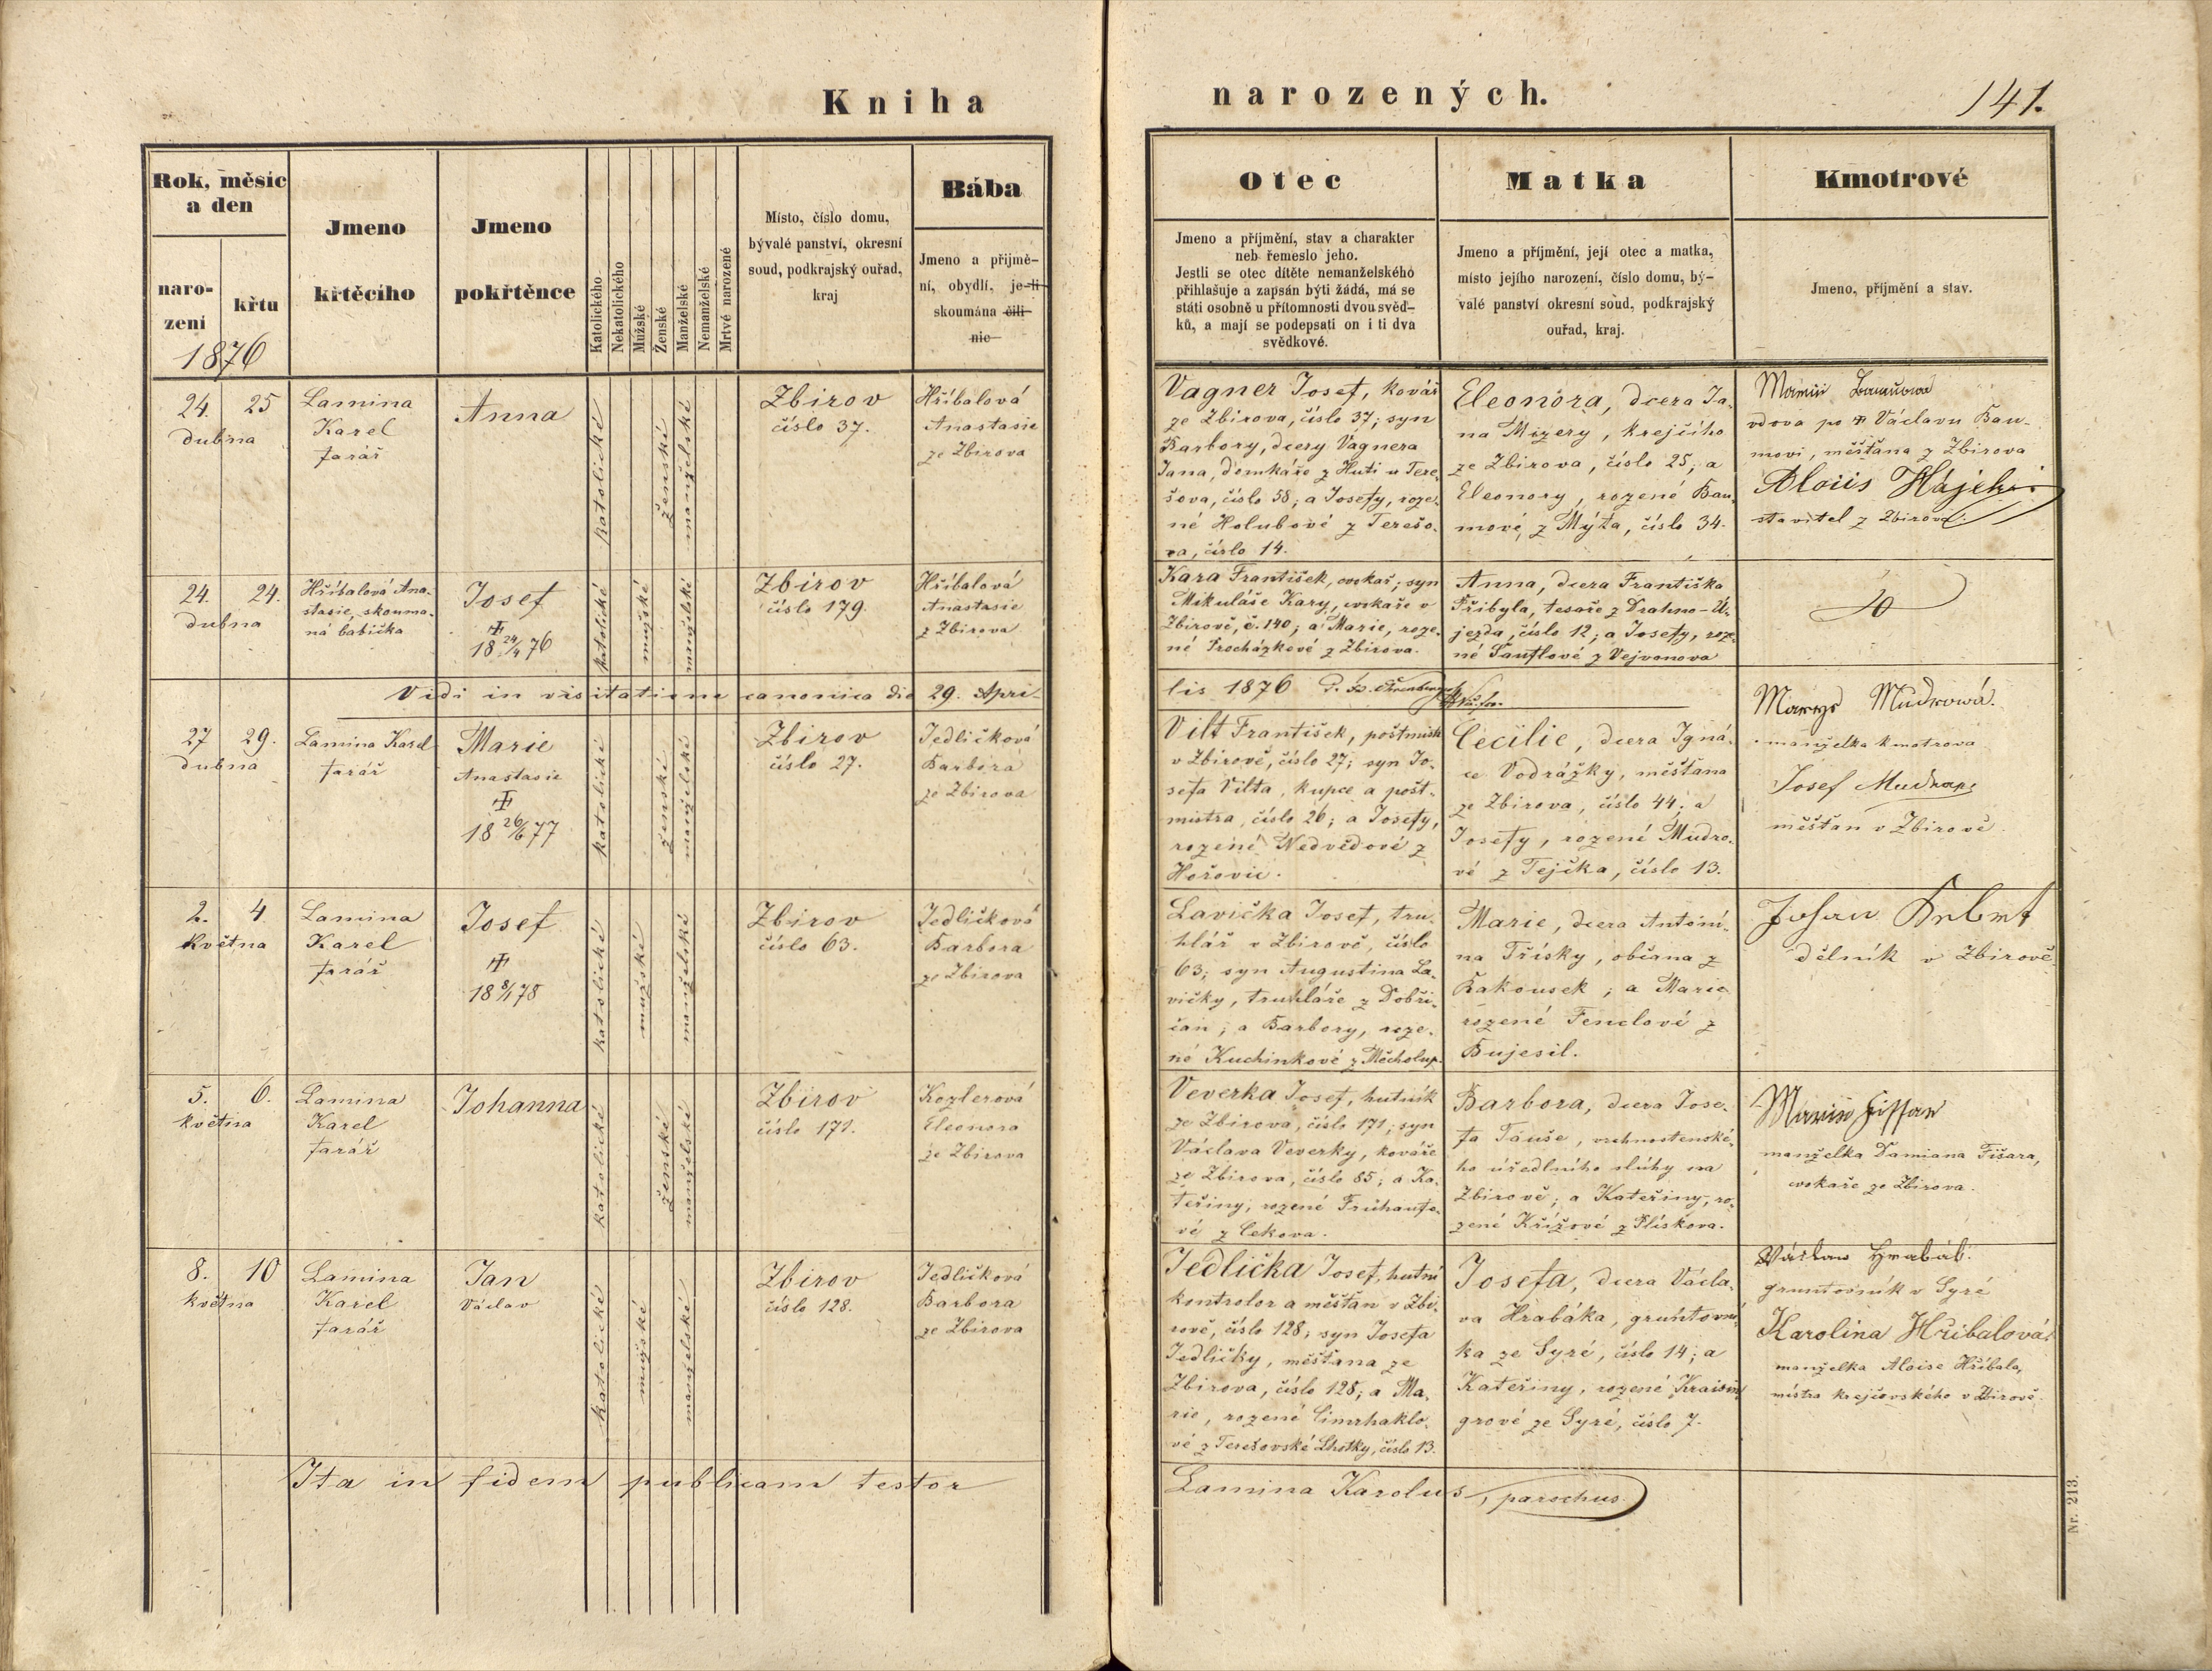 Kniha
narozených.
141.
Rok, měsíc
a den
naro-
zení
křtu
1876
Jmeno
křtěcího
Jmeno
pokřtěnce
Katolického
Nekatolického
Mužské
Ženské
Manželské
Nemanželské
Mrtvé narozené
Místo, číslo domu,
bývalé panství, okresní
soud, podkrajský ouřad,
kraj
Bába
Jmeno a přijmě-
ní, obydlí, je-li
skoumána čili
nic
Otec
Jmeno a příjmění, stav a charakter
neb řemeslo jeho.
Jestli se otec dítěte nemanželského
přihlašuje a zapsán býti žádá, má se
státi osobně u přítomnosti dvou svěd-
ků, a mají se podepsati on i ti dva
svědkové.
Matka
Jmeno a příjmění, její otec a matka,
místo jejího narození, číslo domu, bý-
valé panství okresní soud, podkrajský
ouřad, kraj.
Kmotrové
Jmeno, příjmění a stav.
24. 25
dubna
Lamina
Karel
farář
Anna
katolické
ženské
manželské
Zbirov
číslo 37.
Hříbalová
Anastasie
ze Zbirova
Vagner Josef, kovář
ze Zbirova, číslo 37; syn
Barbory, dcery Vagnera
Jana, domkáře z Huti u Tere-
šova, číslo 58; a Josefy, roze-
né Holubové z Terešo-
va, číslo 14.
Eleonóra, dcera Ja-
na Mizery, krejčího
ze Zbirova, číslo 25; a
Eleonory, rozené Bau-
mové, z Mýta, číslo 34.
vdova po Václavu Bau-
movi, měšťana z Zbirova
Aloiis Hájek
stavitel z Zbirova.
24. 24.
dubna
Hříbalová Ana-
stasie, skouma-
ná babička
Josef
18 24/4 76
katolické
mužské
manželské
Zbirov
číslo 179.
Hříbalová
Anastasie
z Zbirova
Kara František, cvokař; syn
Mikuláše Kary, cvokaře v
Zbirově, č. 140; a Marie, roze-
né Procházkové z Zbirova.
Anna, dcera Františka
Přibyla, tesaře z Drahno-Ú-
jezda, číslo 12; a Josefy, roze-
né Šauflové z Vejvanova
Vidi in visitatione canonica die 29. Apri-
lis 1876
27 29.
dubna
Lamina Karel
farář
Marie
Anastasie
18 26/6 77
katolické
ženské
manželské
Zbirov
číslo 27.
Jedličková
Barbora
ze Zbirova
Vilt František, poštmistr
v Zbirově, číslo 27; syn Jo-
sefa Vilta, kupce a pošt-
mistra, číslo 26; a Josefy,
rozené Nedvědové z
Hořovic.
Cecilie, dcera Igná-
ce Vodrážky, měšťana
ze Zbirova, číslo 44; a
Josefy, rozené Mudro-
vé z Tejčka, číslo 13.
Mudrowá.
manželka kmotrova
Josef
měšťan v Zbirově.
2. 4.
května
Lamina
Karel
farář
Josef
18 8/1 78
katolické
mužské
manželské
Zbirov
číslo 63.
Jedličková
Barbora
ze Zbirova
Lavička Josef, tru-
hlář v Zbirově, číslo
63; syn Augustina La-
vičky, truhláře z Dobři-
čan; a Barbory, roze-
né Kuchinkové z Měcholup.
Marie, dcera Antoní-
na Třísky, občana z
Rakousek; a Marie
rozené Fenclové z
Bujesil.
Johan
dělník v Zbirově
5. 6.
května
Lamina
Karel
farář
Johanna
katolické
ženské
manželské
Zbirov
číslo 171.
Kozlerová
Eleonora
ze Zbirova
Veverka Josef, hutník
ze Zbirova, číslo 171; syn
Václava Veverky, kováře
ze Zbirova, číslo 85; a Ka-
teřiny, rozené Frühaufo-
vé z Cekova.
Barbora, dcera Jose-
fa Tauše, vrchnostenské-
ho úředlního slúhy na
Zbirově; a Kateřiny, ro-
zené Křížové z Plískova.
manželka Damiana Fišara,
cvokaře ze Zbirova.
8. 10
května
Lamina
Karel
farář
Jan
Václav
katolické
mužské
manželské
Zbirov
číslo 128.
Jedličková
Barbora
ze Zbirova
Jedlička Josef, hutní
kontrolor a měšťan v Zbi-
rově, číslo 128; syn Josefa
Jedličky, měšťana ze
Zbirova, číslo 128; a Ma-
rie, rozené Cimrhaklo-
vé z Terešovské Lhotky, číslo 13.
Josefa, dcera Václa-
va Hrabáka, gruntovní-
ka ze Syré, číslo 14; a
Kateřiny, rozené
grové ze Syré, číslo 7.
Václaw Hrabák.
gruntovník v Syré
Karolina Hřibalová
manželka Aloise Hříbala,
mistra krejčovského v Zbirově.
Ita in fidem publicam testor
Lamina Karolus, parochus.
Nr. 213.